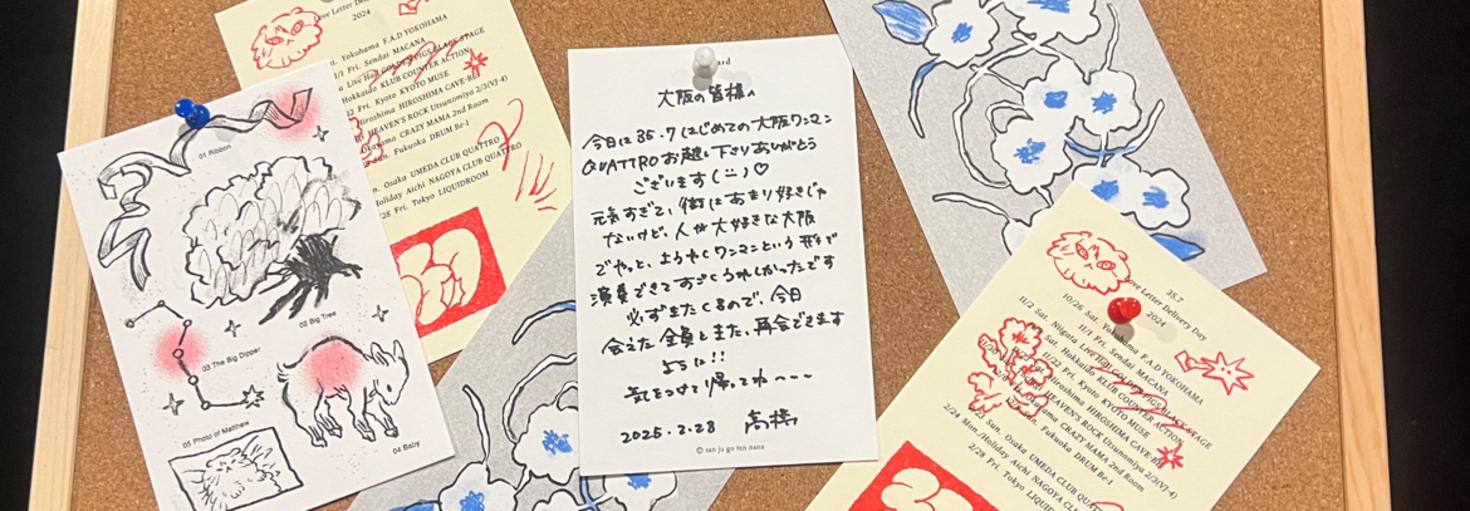 Love Letter Delivery
2024
Sat. Yokohama F.A.D YOKOHAMA
11/1 Fri. Sendai MACANA
Live Hall GOLDEN PIGS BLACK STAGE
Hokkaido KLUB COUNTER ACTION
Fri. Kyoto KYOTO MUSE
Hiroshima HIROSHIMA CAVE-BE
HEAVEN'S ROCK Utsunomiya 2/3(VJ-4)
Okayama CRAZY MAMA 2nd Room
Sun. Fukuoka DRUM Be-1
Sun. Osaka UMEDA CLUB QUATTRO
Holiday Aichi NAGOYA CLUB QUATTRO
2/28 Fri. Tokyo LIQUIDROOM
01 Ribbon
02 Big Tree
03 The Big Dipper
04 Baby
05 Photo of Matthew
大阪の皆様へ
今日は35.7はじめての大阪ワンマン
QUATTROお越し下さりありがとう
ございます(:-)♡
元気すぎて、街はあまり好きじゃ
ないけど、人が大好きな大阪
でやっと、ようやくワンマンという形で
演奏できてすごくうれしかったです
必ずまたくるので、今日
会えた全員とまた、再会できます
ように!!
気をつけて帰ってね〜〜
2025.2.28 高橋
© san ju go ten nana
35.7
Love Letter Delivery Day
2024
10/26 Sat. Yokohama F.A.D YOKOHAMA
11/1 Fri. Sendai MACANA
11/2 Sat. Niigata Live Hall GOLDEN PIGS BLACK STAGE
Sat. Hokkaido KLUB COUNTER ACTION
11/22 Fri. Kyoto KYOTO MUSE
Hiroshima HIROSHIMA CAVE-BE
HEAVEN'S ROCK Utsunomiya 2/3(VJ-4)
Okayama CRAZY MAMA 2nd Room
Sun. Fukuoka DRUM Be-1
2/23 Sun. Osaka UMEDA CLUB QUATTRO
2/24 Mon./Holiday Aichi NAGOYA CLUB
2/28 Fri. Tokyo LIQUIDROOM